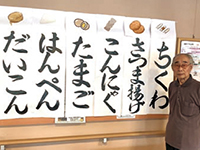 ちくわ
さつま揚げ
こんにゃく
たまご
はんぺん
だいこん